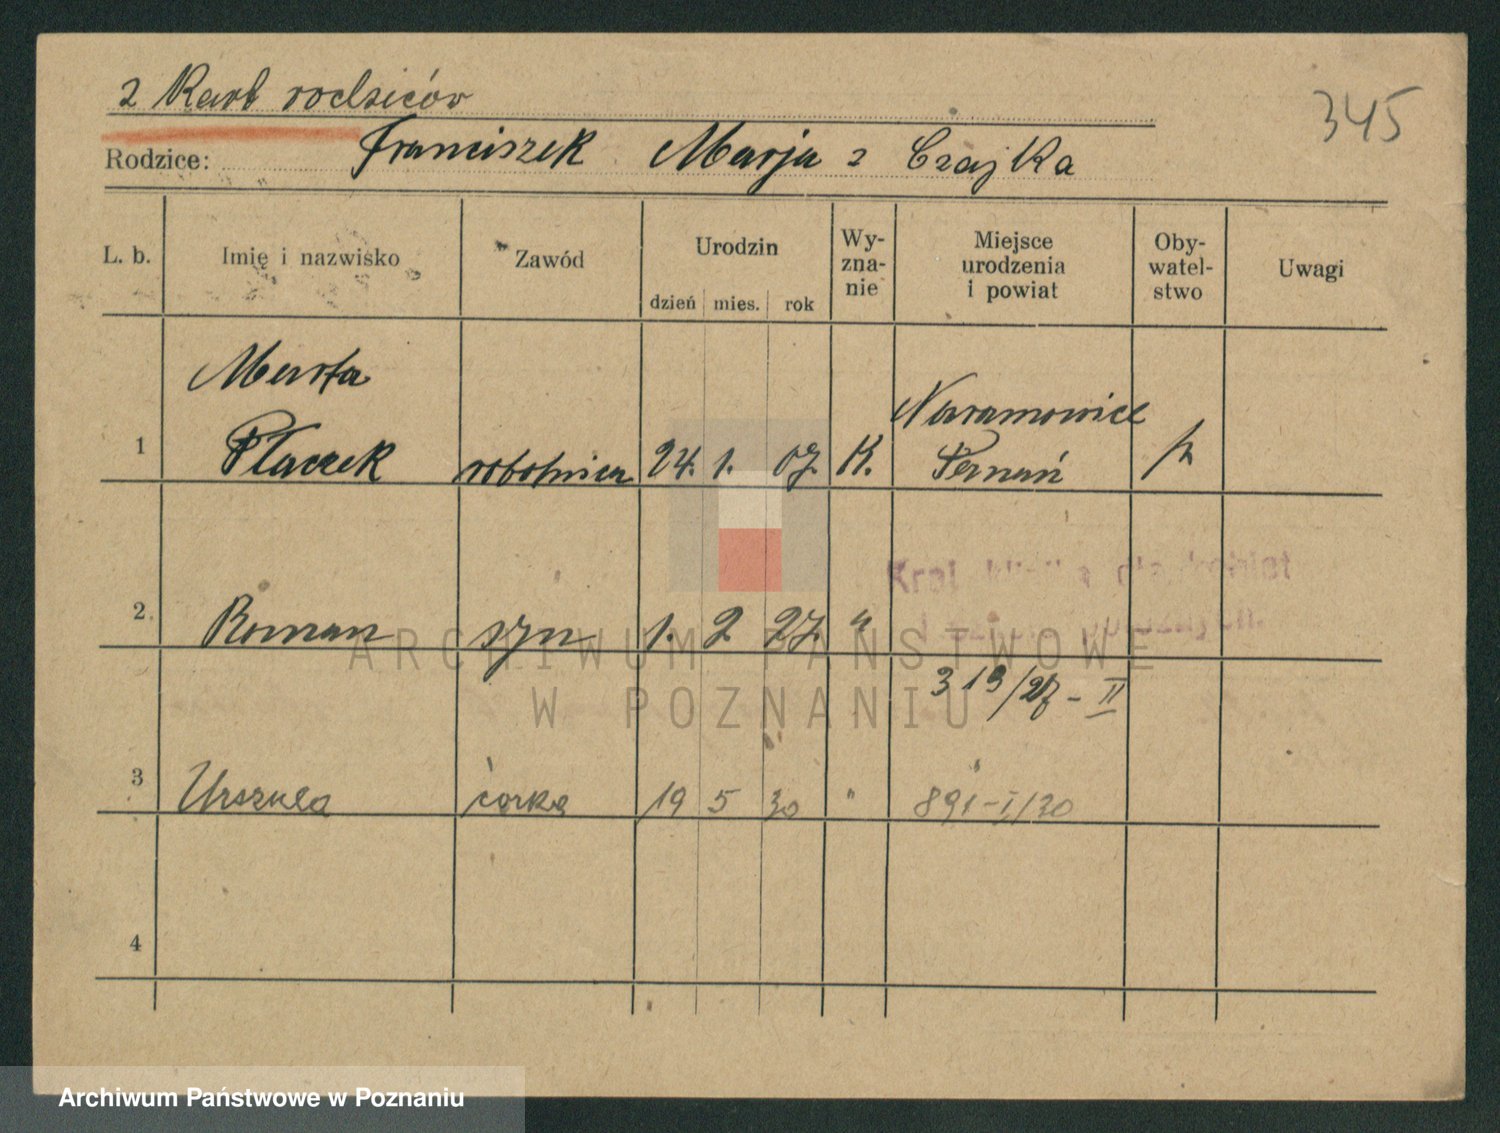 z Kart rodziców
345
Rodzice: Franciszek Marja z Czajka
L. b. Imię i nazwisko Zawód Urodzin dzień mies. rok Wy-zna-nie Miejsce urodzenia i powiat Oby-watel-stwo Uwagi
Marta
Naramowice
1 Płaczek robotnica 24. 1. 07. K. Poznań p
Krol. klinika dla kobiet
2. Roman syn 1. 2 27. "
319/27 - II
3 Urszula córka 19 5 30 " 891-I/30
4
ARCHIWUM PAŃSTWOWE
W POZNANIU
Archiwum Państwowe w Poznaniu